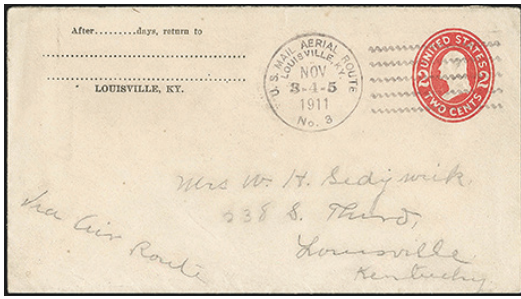 After.........days, return to
LOUISVILLE, KY.
U. S. MAIL AERIAL ROUTE
LOUISVILLE, KY.
NOV
3-4-5
1911
No. 3
UNITED STATES
2 2
TWO CENTS
Mrs W. H. Sedgwick
538 S. Third,
Louisville
Kentucky
Via Air Route